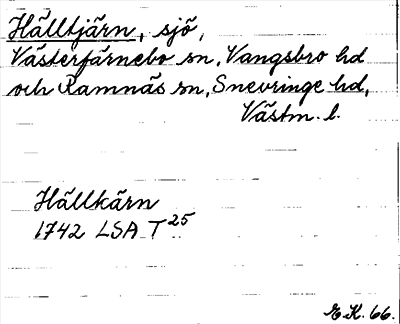 Hälltjärn, sjö,
Västerfärnebo sn, Vangsbro hd
och Ramnäs sn, Snevringe hd,
Västm. l.
Hällkärn
1742 LSA T25
E.K. 66.